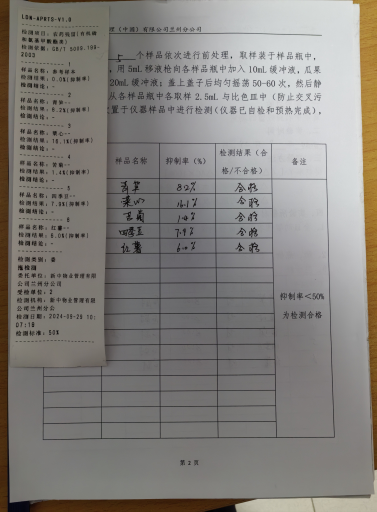 LDN-AP01S-V1.0
检测项目：农药残留(有机磷
和氨基甲酸酯类)
检测依据：GB/T 5009.199-
2003
1
样品名称：参考样本
检测结果：0.0%(抑制率)
检测结论：-
2
检测结果：8.2%(抑制率)
检测结论：-
3
检测结果：16.1%(抑制率)
检测结论：-
4
检测结果：1.4%(抑制率)
检测结论：-
5
样品名称：四季豆--
检测结果：7.9%(抑制率)
检测结论：-
6
样品名称：红薯--
检测结果：6.0%(抑制率)
检测结论：-
检测类别：
委托单位：新中物业管理有限
公司兰州分公司
受检单位：2
检测机构：新中物业管理有限
公司兰州分公
检测日期：2024-09-29 10:
07:18
检测标准：50%
理（中国）有限公司兰州分公司
5 个样品依次进行前处理，取样装于样品瓶中，
，用 5mL 移液枪向各样品瓶中加入 10mL 缓冲液，瓜果
20mL 缓冲液；盖上盖子后均匀摇荡 50-60 次，然后静
从各样品瓶中各取样 2.5mL 与比色皿中（防止交叉污
置于仪器样品中进行检测（仪器已自检和预热完成），
样品名称 抑制率（%） 检测结果（合格/不合格） 备注
8.2% 合格
16.1% 合格
1.4% 合格
四季豆 7.9% 合格
红薯 6.0% 合格
抑制率＜50%
为检测合格
第 2 页